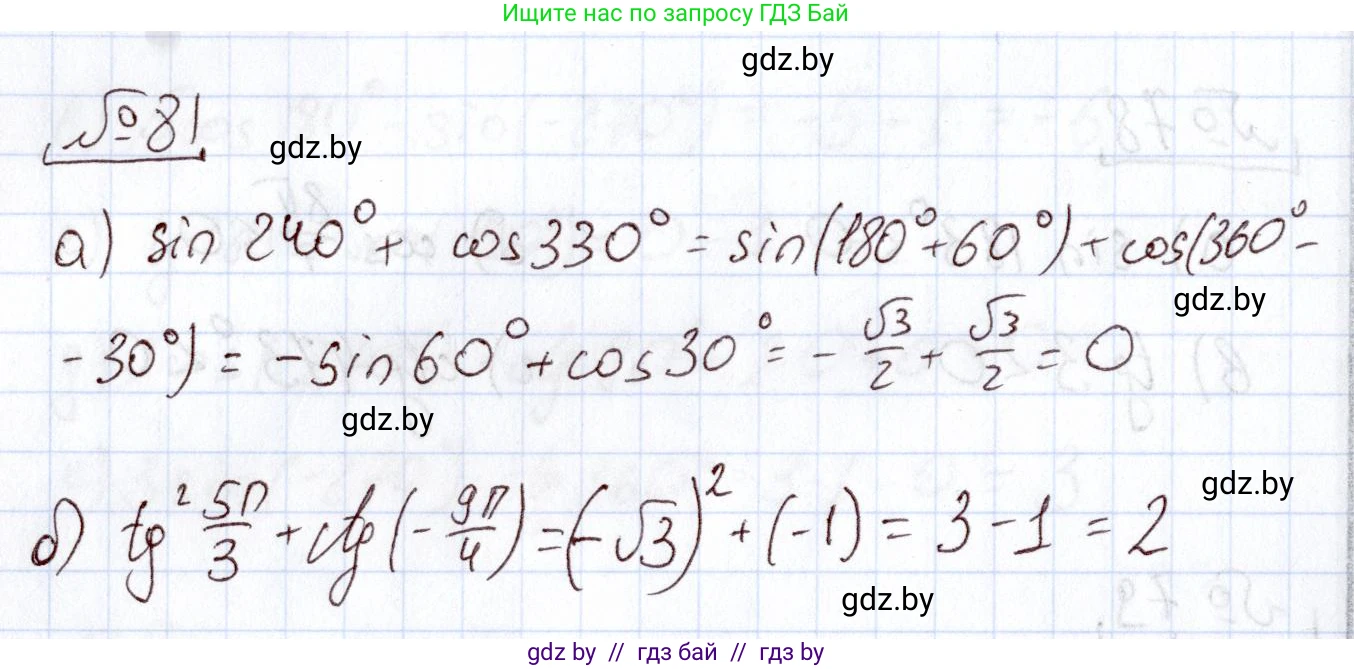 Ищите нас по запросу ГДЗ Бай
gdz.by
№ 81
gdz.by
а) sin 240° + cos 330° = sin(180° + 60°) + cos(360° -
gdz.by
- 30°) = - sin 60° + cos 30° = - √3/2 + √3/2 = 0
gdz.by
gdz.by
б) tg² 5π/3 + ctg(- 9π/4) = (-√3)² + (-1) = 3 - 1 = 2
gdz.by
gdz.by // гдз бай // гдз by